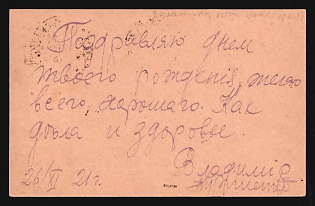 Поздравляю днем
твоего рожденія, желаю
всего, харошаго. Как
дѣла и здоровье.
Владимір
26/XI 21 г.